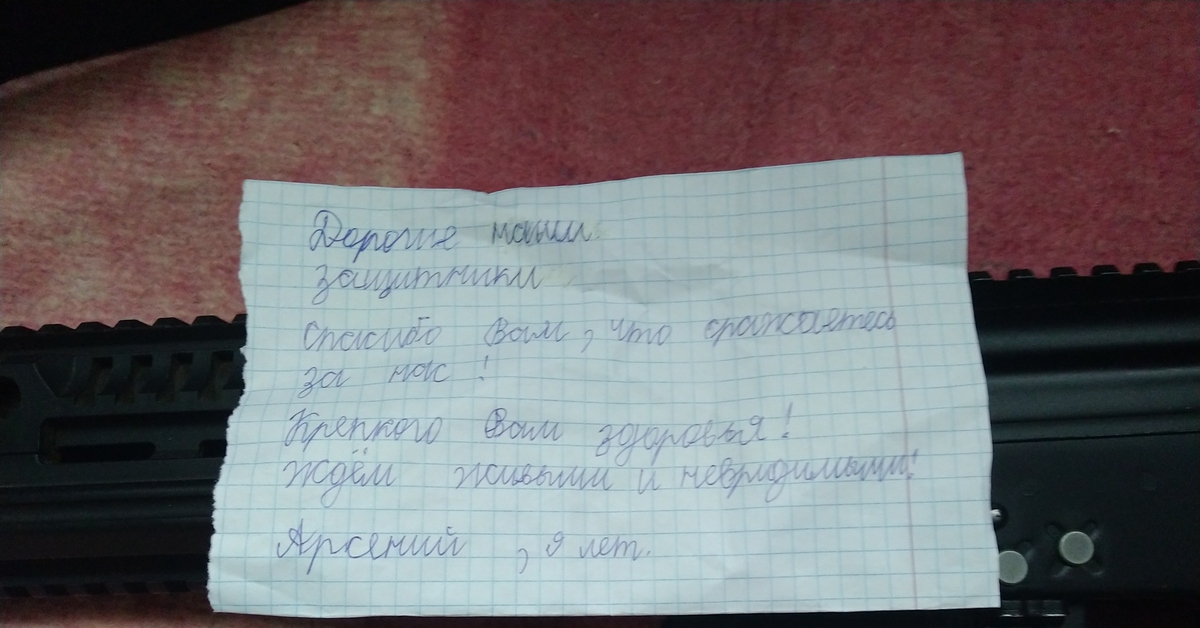 Дорогие наши
защитники
спасибо Вам, что сражаетесь
за нас!
Крепкого Вам здоровья!
Ждём живыми и невридимыми!
Арсений, 9 лет.